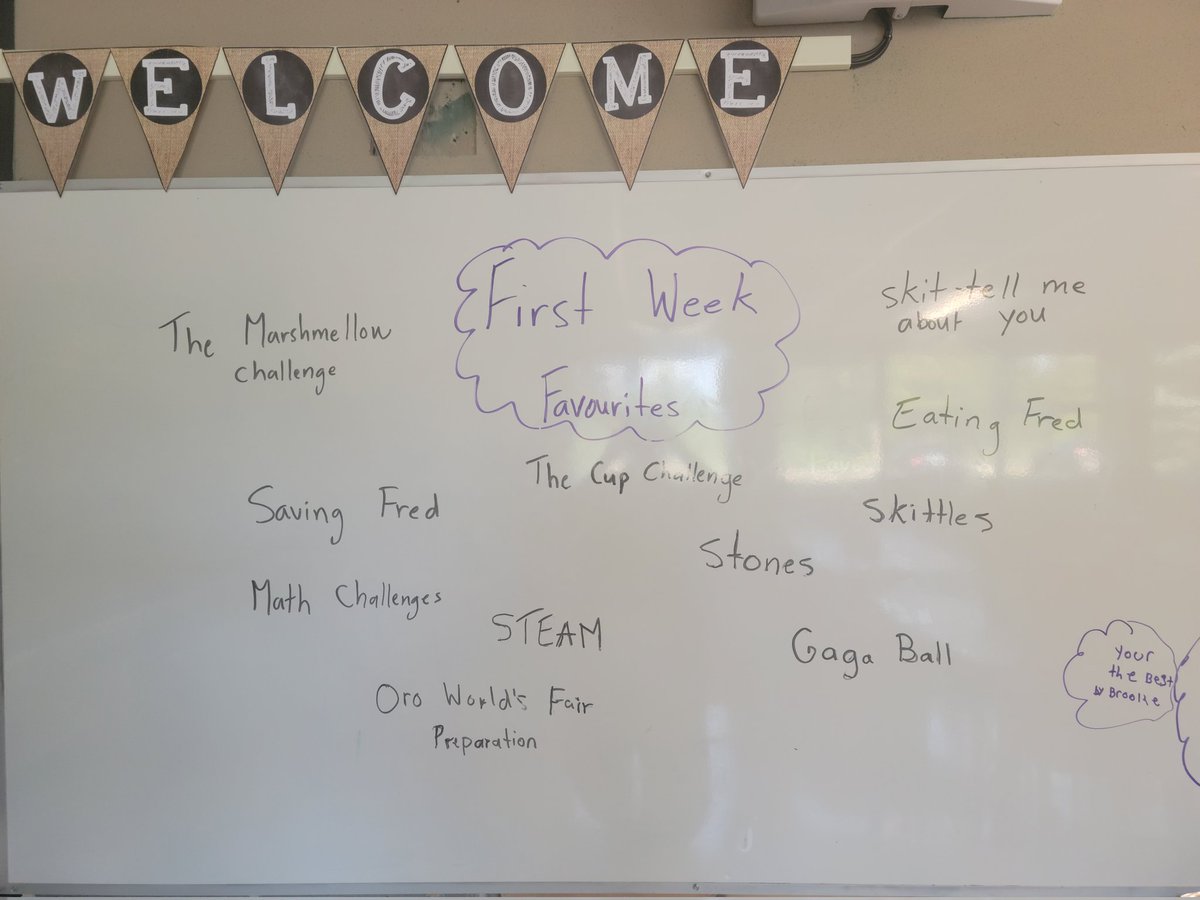 WELCOME
First Week
Favourites
The Marshmellow
challenge
skit-tell me
about you
Eating Fred
The Cup Challenge
Saving Fred
Skittles
Stones
Math Challenges
STEAM
Gaga Ball
Oro World's Fair
Preparation
Your
the Best
Brooke